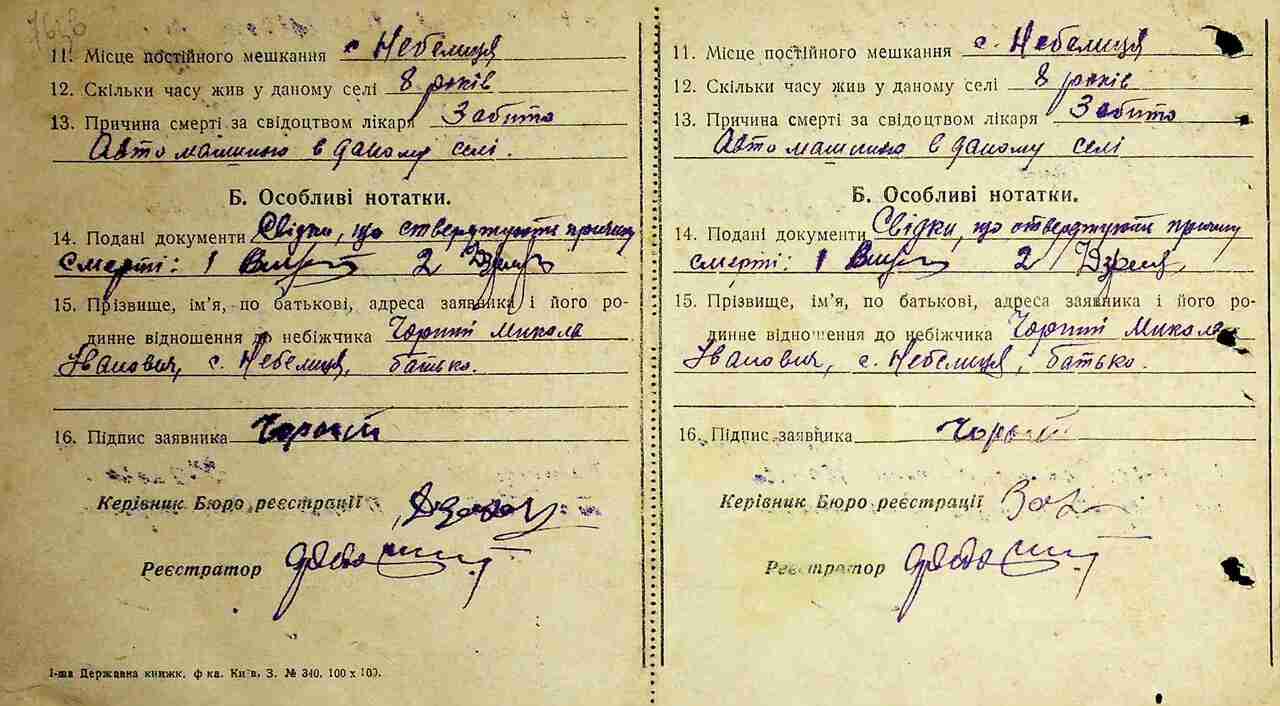 11. Місце постійного мешкання с. Небелиця
12. Скільки часу жив у даному селі 8 років
13. Причина смерті за свідоцтвом лікаря Забито
Автомашиною в даному селі.
Б. Особливі нотатки.
14. Подані документи Свідки, що стверджують причину
смерті: 1 2
15. Прізвище, ім’я, по батькові, адреса заявника і його ро-
динне відношення до небіжчика Микола
Іванович, с. Небелиця, батько.
16. Підпис заявника
Керівник Бюро реєстрації
Реєстратор
1-ша Державна книжк. ф-ка. Київ, З. № 340. 100 х 100.
11. Місце постійного мешкання с. Небелиця
12. Скільки часу жив у даному селі 8 років
13. Причина смерті за свідоцтвом лікаря Забито
Автомашиною в даному селі
Б. Особливі нотатки.
14. Подані документи Свідки, що стверджують причину
смерті: 1 2
15. Прізвище, ім’я, по батькові, адреса заявника і його ро-
динне відношення до небіжчика Микола
Іванович, с. Небелиця, батько.
16. Підпис заявника
Керівник Бюро реєстрації
Реєстратор